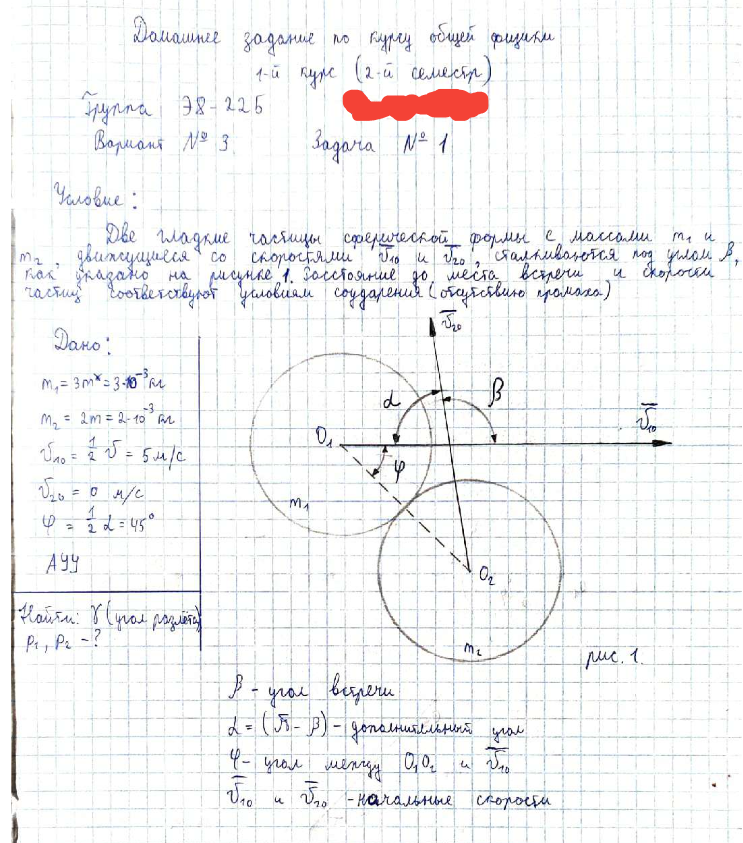 Домашнее задание по курсу общей физики
1-й курс (2-й семестр)
Группа Э8-22Б
Вариант №3 Задача №1
Условие:
Две гладкие частицы сферической формы с массами m₁ и
m₂, движущиеся со скоростями v̅₁₀ и v̅₂₀, сталкиваются под углом β,
как указано на рисунке 1. Расстояние до места встречи и скорости
частиц соответствуют условиям соударения (отсутствию промаха)
Дано:
m₁ = 3m = 3·10⁻³ кг
m₂ = 2m = 2·10⁻³ кг
v₁₀ = 1/2 v = 5 м/с
v₂₀ = 0 м/с
φ = 1/2 α = 45°
АУУ
Найти: γ (угол разлёта)
p₁, p₂ - ?
v̅₂₀
α
β
O₁
v̅₁₀
φ
m₁
O₂
m₂
рис. 1.
β - угол встречи
α = (π - β) - дополнительный угол
φ - угол между O₁O₂ и v̅₁₀
v̅₁₀ и v̅₂₀ - начальные скорости